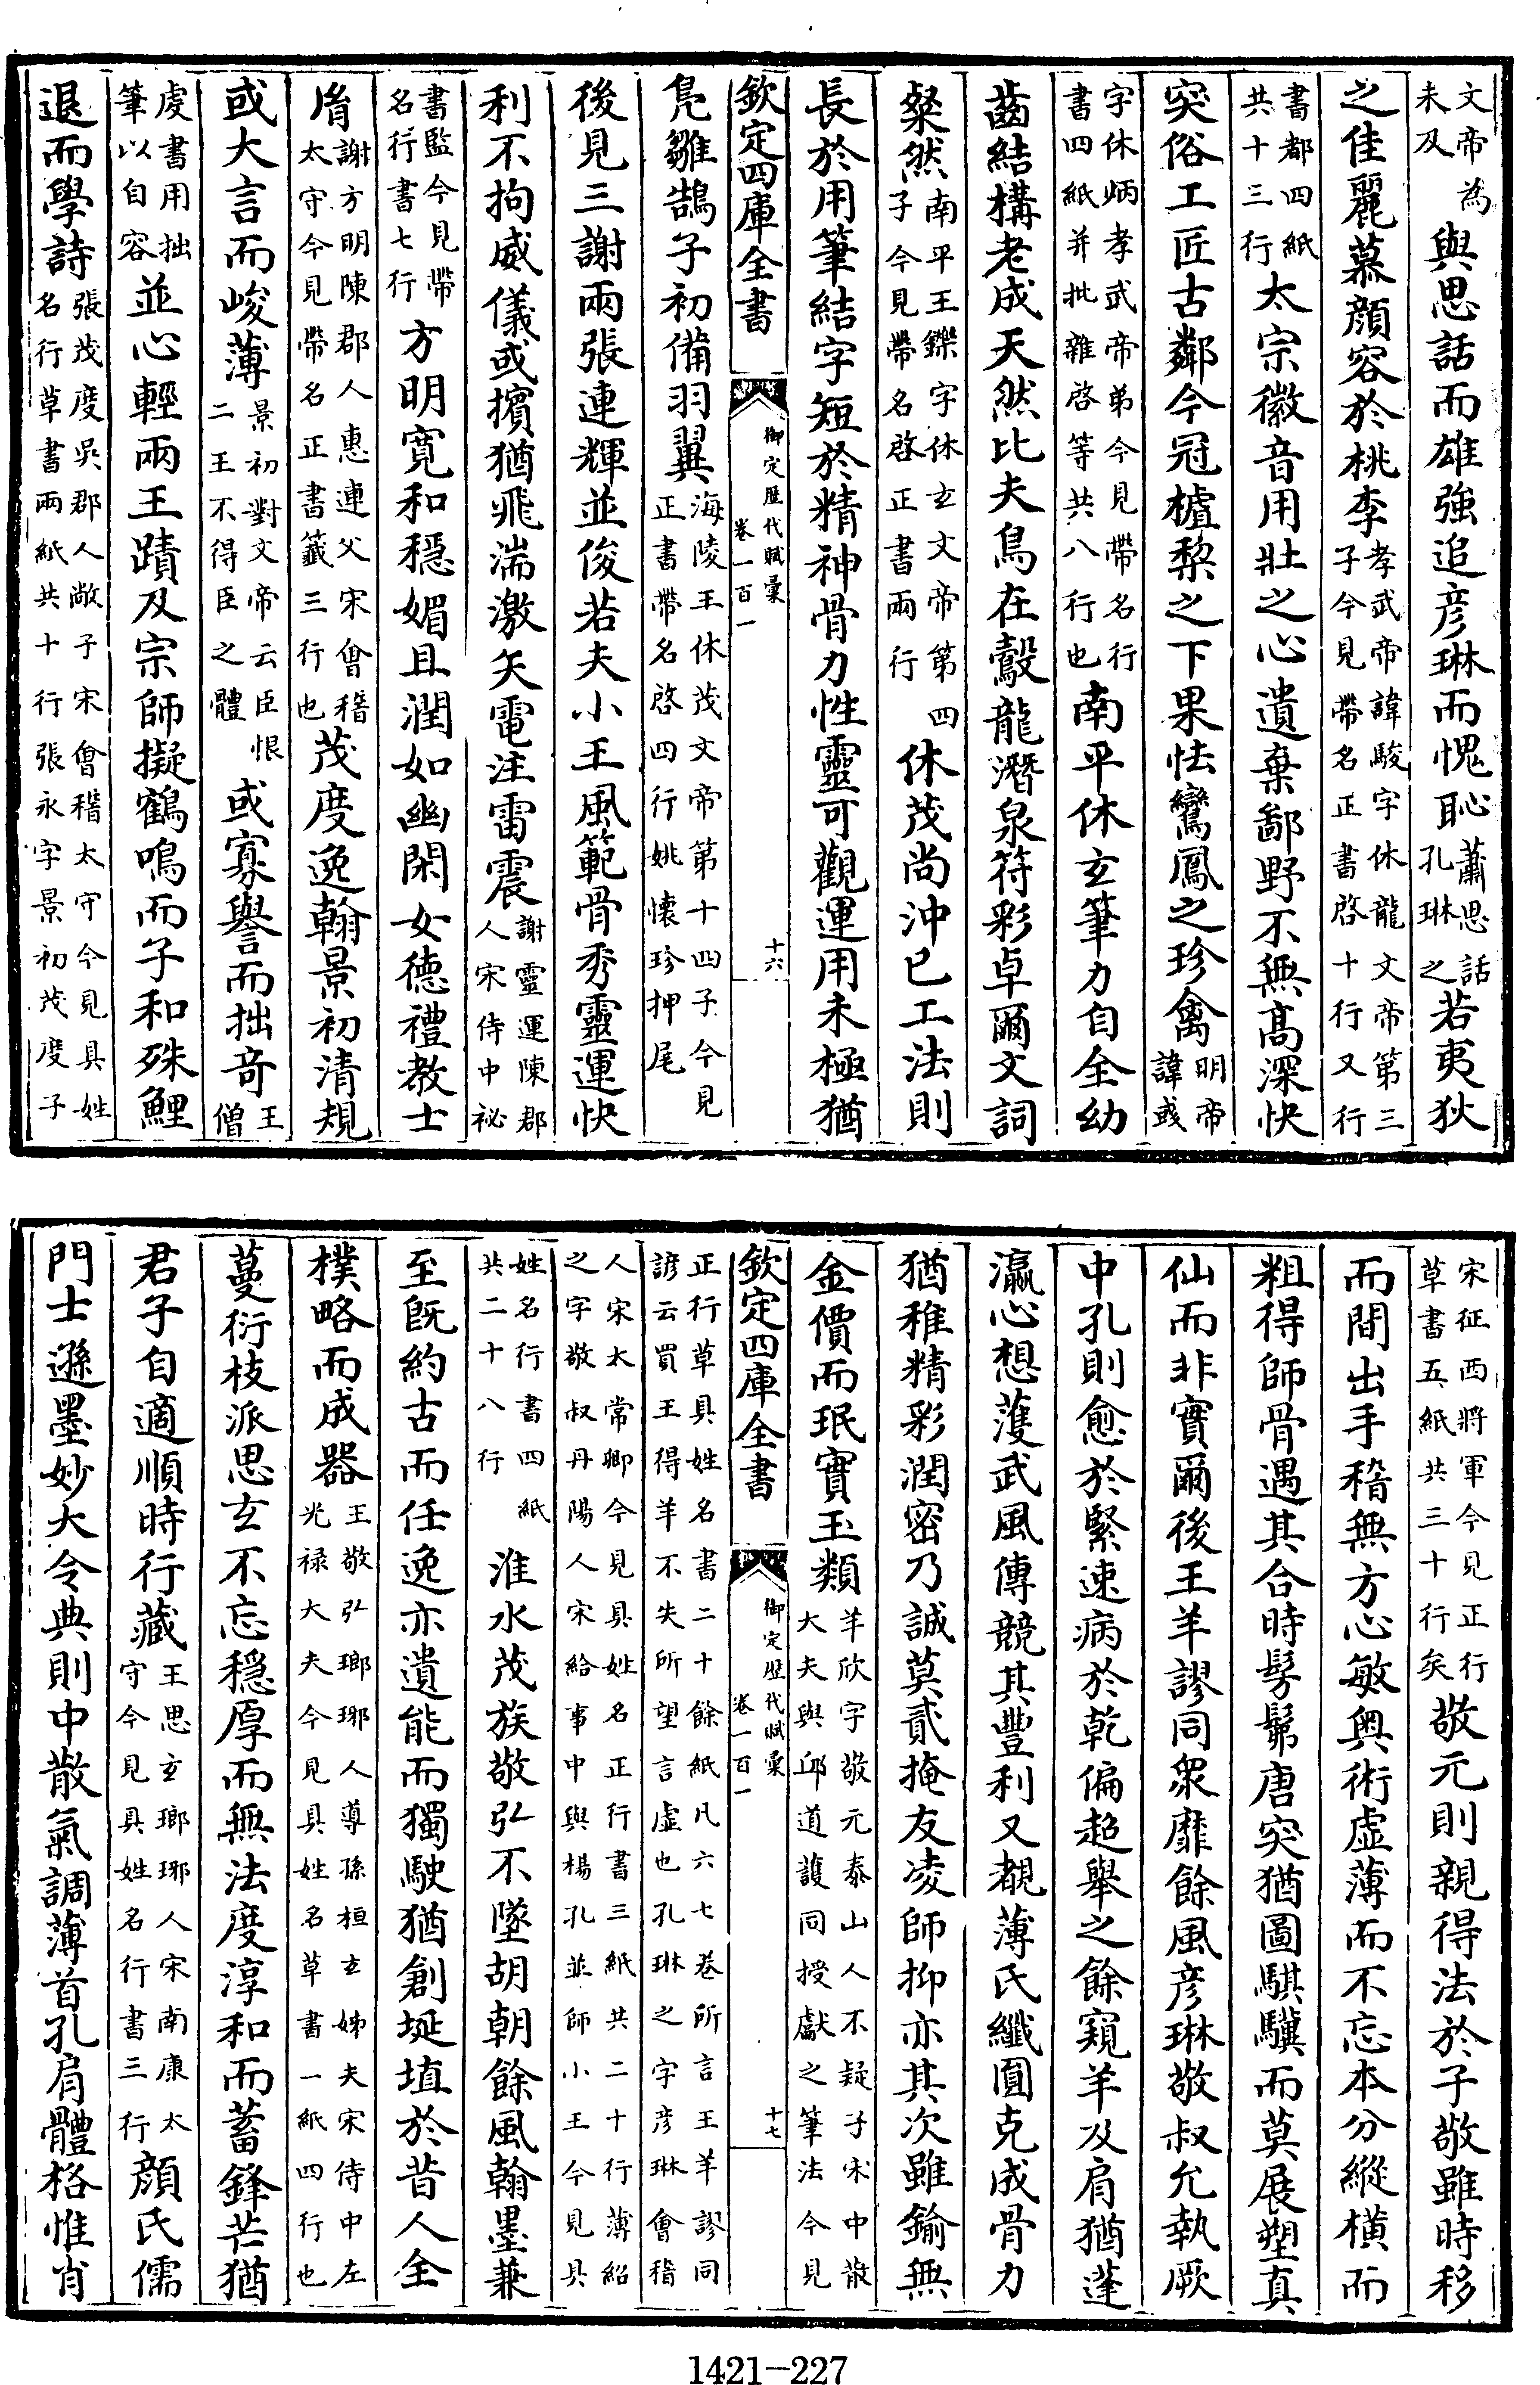 文帝為未及與思話而雄強追彦琳而愧恥蕭思話孔琳之若夷狄
之佳麗慕顔容於桃李孝武帝諱駿字休龍文帝第三子今見帶名正書啓十行又行
書都四紙共十三行太宗徽音用壯之心遺棄鄙野不無髙深快
突俗工匠古鄰今冠樝棃之下果怯鸞鳳之珍禽明帝諱彧
字休炳孝武帝弟今見帶名行書四紙并批雜啓等共八行也南平休玄筆力自全幼
齒結構老成天然比夫鳥在鷇龍潛泉符彩卓爾文詞
粲然南平王鑠字休玄文帝第四子今見帶名啓正書兩行休茂尚沖已工法則
長於用筆結字短於精神骨力性靈可觀運用未極猶
欽定四庫全書 御定歴代賦彙 卷一百一 十六
凫雛鵠子初備羽翼海陵王休茂文帝第十四子今見正書帶名啓四行姚懐珍押尾
後見三謝兩張連輝並俊若夫小王風範骨秀靈運快
利不拘威儀或擯猶飛湍激矢電注雷震謝靈運陳郡人宋侍中祕
書監今見帶名行書七行方明寛和穩媚且潤如幽閑女德禮教士
胤謝方明陳郡人惠連父宋會稽太守今見帶名正書籤三行也茂度逸翰景初清規
或大言而峻薄景初對文帝云臣恨二王不得臣之體或寡譽而拙奇王僧
虔書用拙筆以自容並心輕兩王蹟及宗師擬鶴鳴而子和殊鯉
退而學詩張茂度吳郡人敞子宋會稽太守今見具姓名行草書兩紙共十行張永字景初茂度子
宋征西將軍今見正行草書五紙共三十行矣敬元則親得法於子敬雖時移
而間出手稽無方心敏奥術虚薄而不忘本分縱橫而
粗得師骨遇其合時髣髴唐突猶圖騏驥而莫展塑真
仙而非實爾後王羊謬同衆靡餘風彦琳敬叔允執厥
中孔則愈於緊速病於乾偏超舉之餘窺羊及肩猶蓬
瀛心想蒦武風傳競其豐利又覩薄氏纖圓克成骨力
猶稚精彩潤密乃誠莫貳掩友凌師抑亦其次雖鍮無
金價而珉實玉類羊欣字敬元泰山人不疑子宋中散大夫與邱道護同授獻之筆法今見
欽定四庫全書 御定歴代賦彙 卷一百一 十七
正行草具姓名書二十餘紙凡六七卷所言王羊謬同諺云買王得羊不失所望言虚也孔琳之字彦琳會稽
人宋太常卿今見具姓名正行書三紙共二十行薄紹之字敬叔丹陽人宋給事中與楊孔並師小王今見具
姓名行書四紙共二十八行淮水茂族敬弘不墜胡朝餘風翰墨兼
至旣約古而任逸亦遺能而獨駛猶創埏埴於昔人全
樸略而成器王敬弘瑯琊人導孫桓玄姊夫宋侍中左光禄大夫今見具姓名草書一紙四行也
蔓衍枝派思玄不忘穏厚而無法度淳和而蓄鋒芒猶
君子自適順時行藏王思玄瑯琊人宋南康太守今見具姓名行書三行顔氏儒
門士遜墨妙大令典則中散氣調薄首孔肩體格惟肖
1421-227